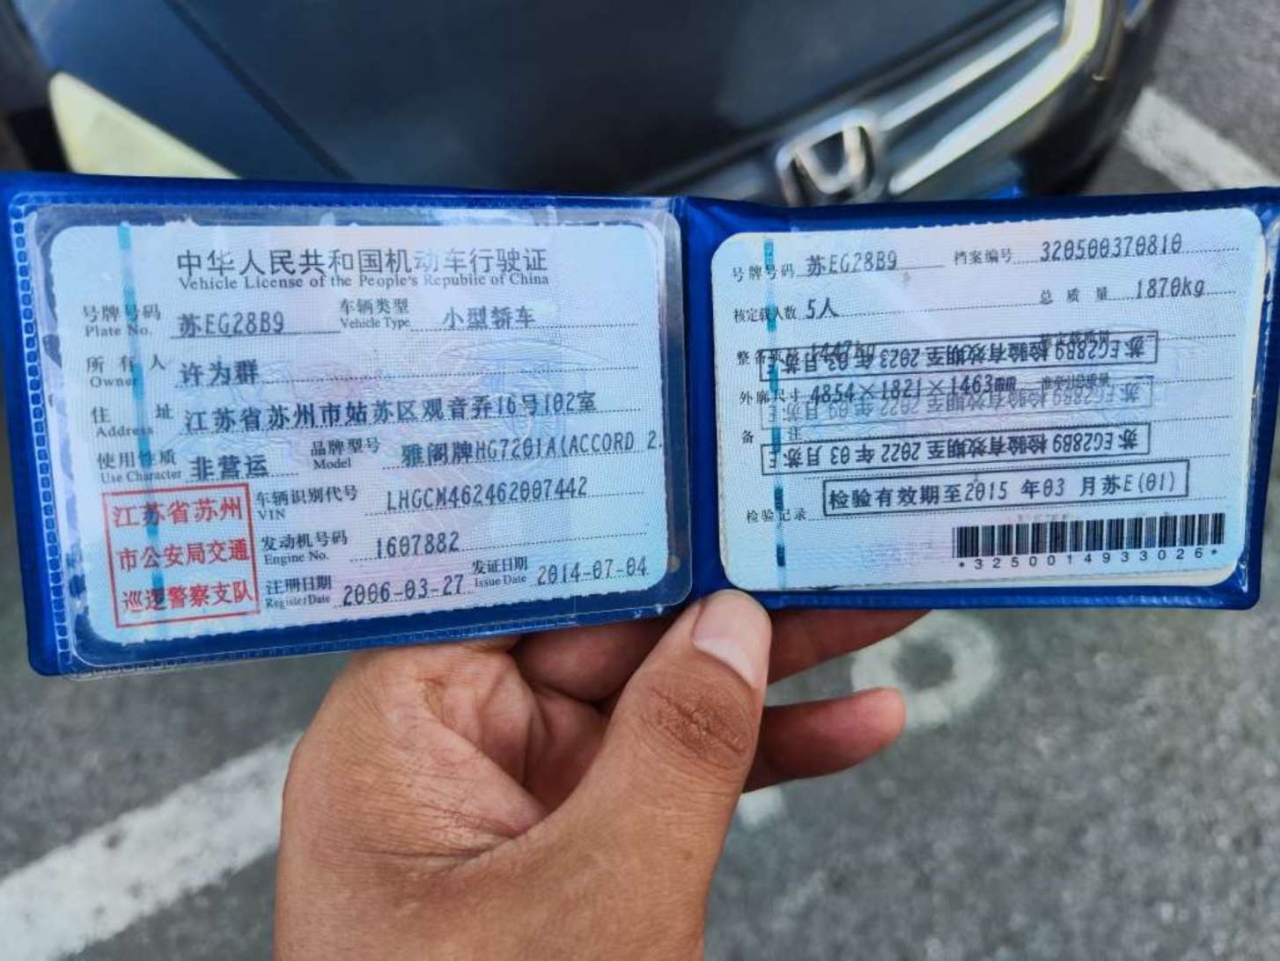 中华人民共和国机动车行驶证
Vehicle License of the People's Republic of China
号牌号码 苏EG28B9 车辆类型 小型轿车
Plate No. Vehicle Type
所有人 许为群
Owner
住址 江苏省苏州市姑苏区观音弄16号102室
Address
使用性质 非营运 品牌型号 雅阁牌HG7201A(ACCORD 2.
Use Character Model
江苏省苏州
市公安局交通
巡逻警察支队
车辆识别代号 LHGCM462462007442
VIN
发动机号码 1607882
Engine No.
注册日期 2006-03-27 发证日期 2014-07-04
Register Date Issue Date
号牌号码 苏EG28B9 档案编号 320500370810
核定载人数 5人 总质量 1870kg
整备质量
苏EG28B9 检验有效期至 2023 年 03 月苏E
外廓尺寸 4854×1821×1463mm
苏EG28B9 检验有效期至 2022 年 09 月苏E
备注
苏EG28B9 检验有效期至 2022 年 03 月苏E
检验记录 检验有效期至2015 年03 月苏E(01)
*3250014933026*